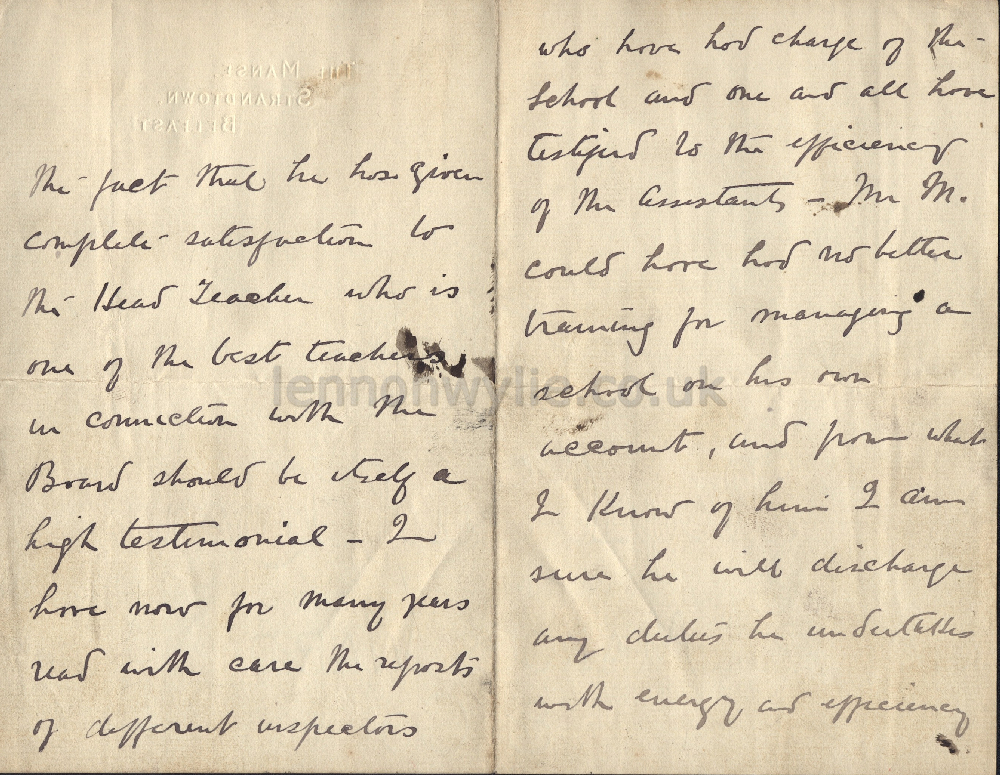 THE MANSE,
STRANDTOWN,
BELFAST.
the fact that he has given
complete satisfaction to
the Head Teacher who is
one of the best teachers
in connection with the
Board should be itself a
high testimonial – I
have now for many years
read with care the reports
of different inspectors
who have had charge of the
School and one and all have
testified to the efficiency
of the Assistants – Mr M.
could have had no better
training for managing a
school on his own
account, and from what
I know of him I am
sure he will discharge
any duties he undertakes
with energy and efficiency
lennonwylie.co.uk